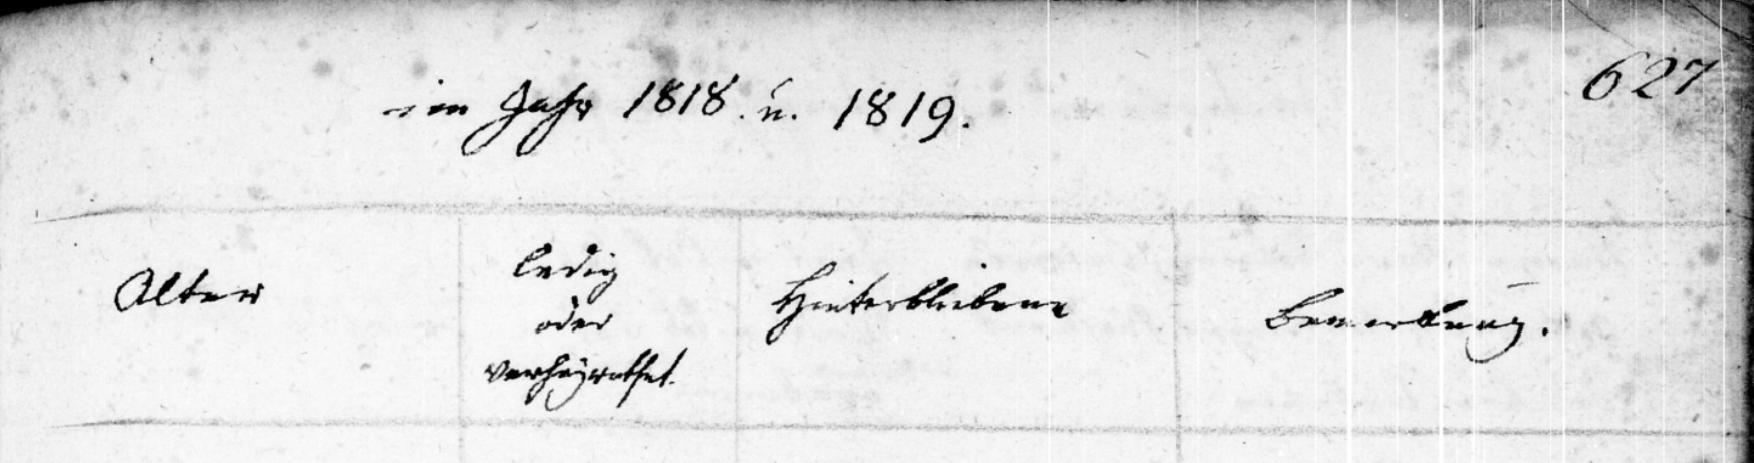 627
im Jahr 1818. u. 1819.
Alter
ledig
oder
verheyrathet.
Hinterbliebene
Bemerkung.